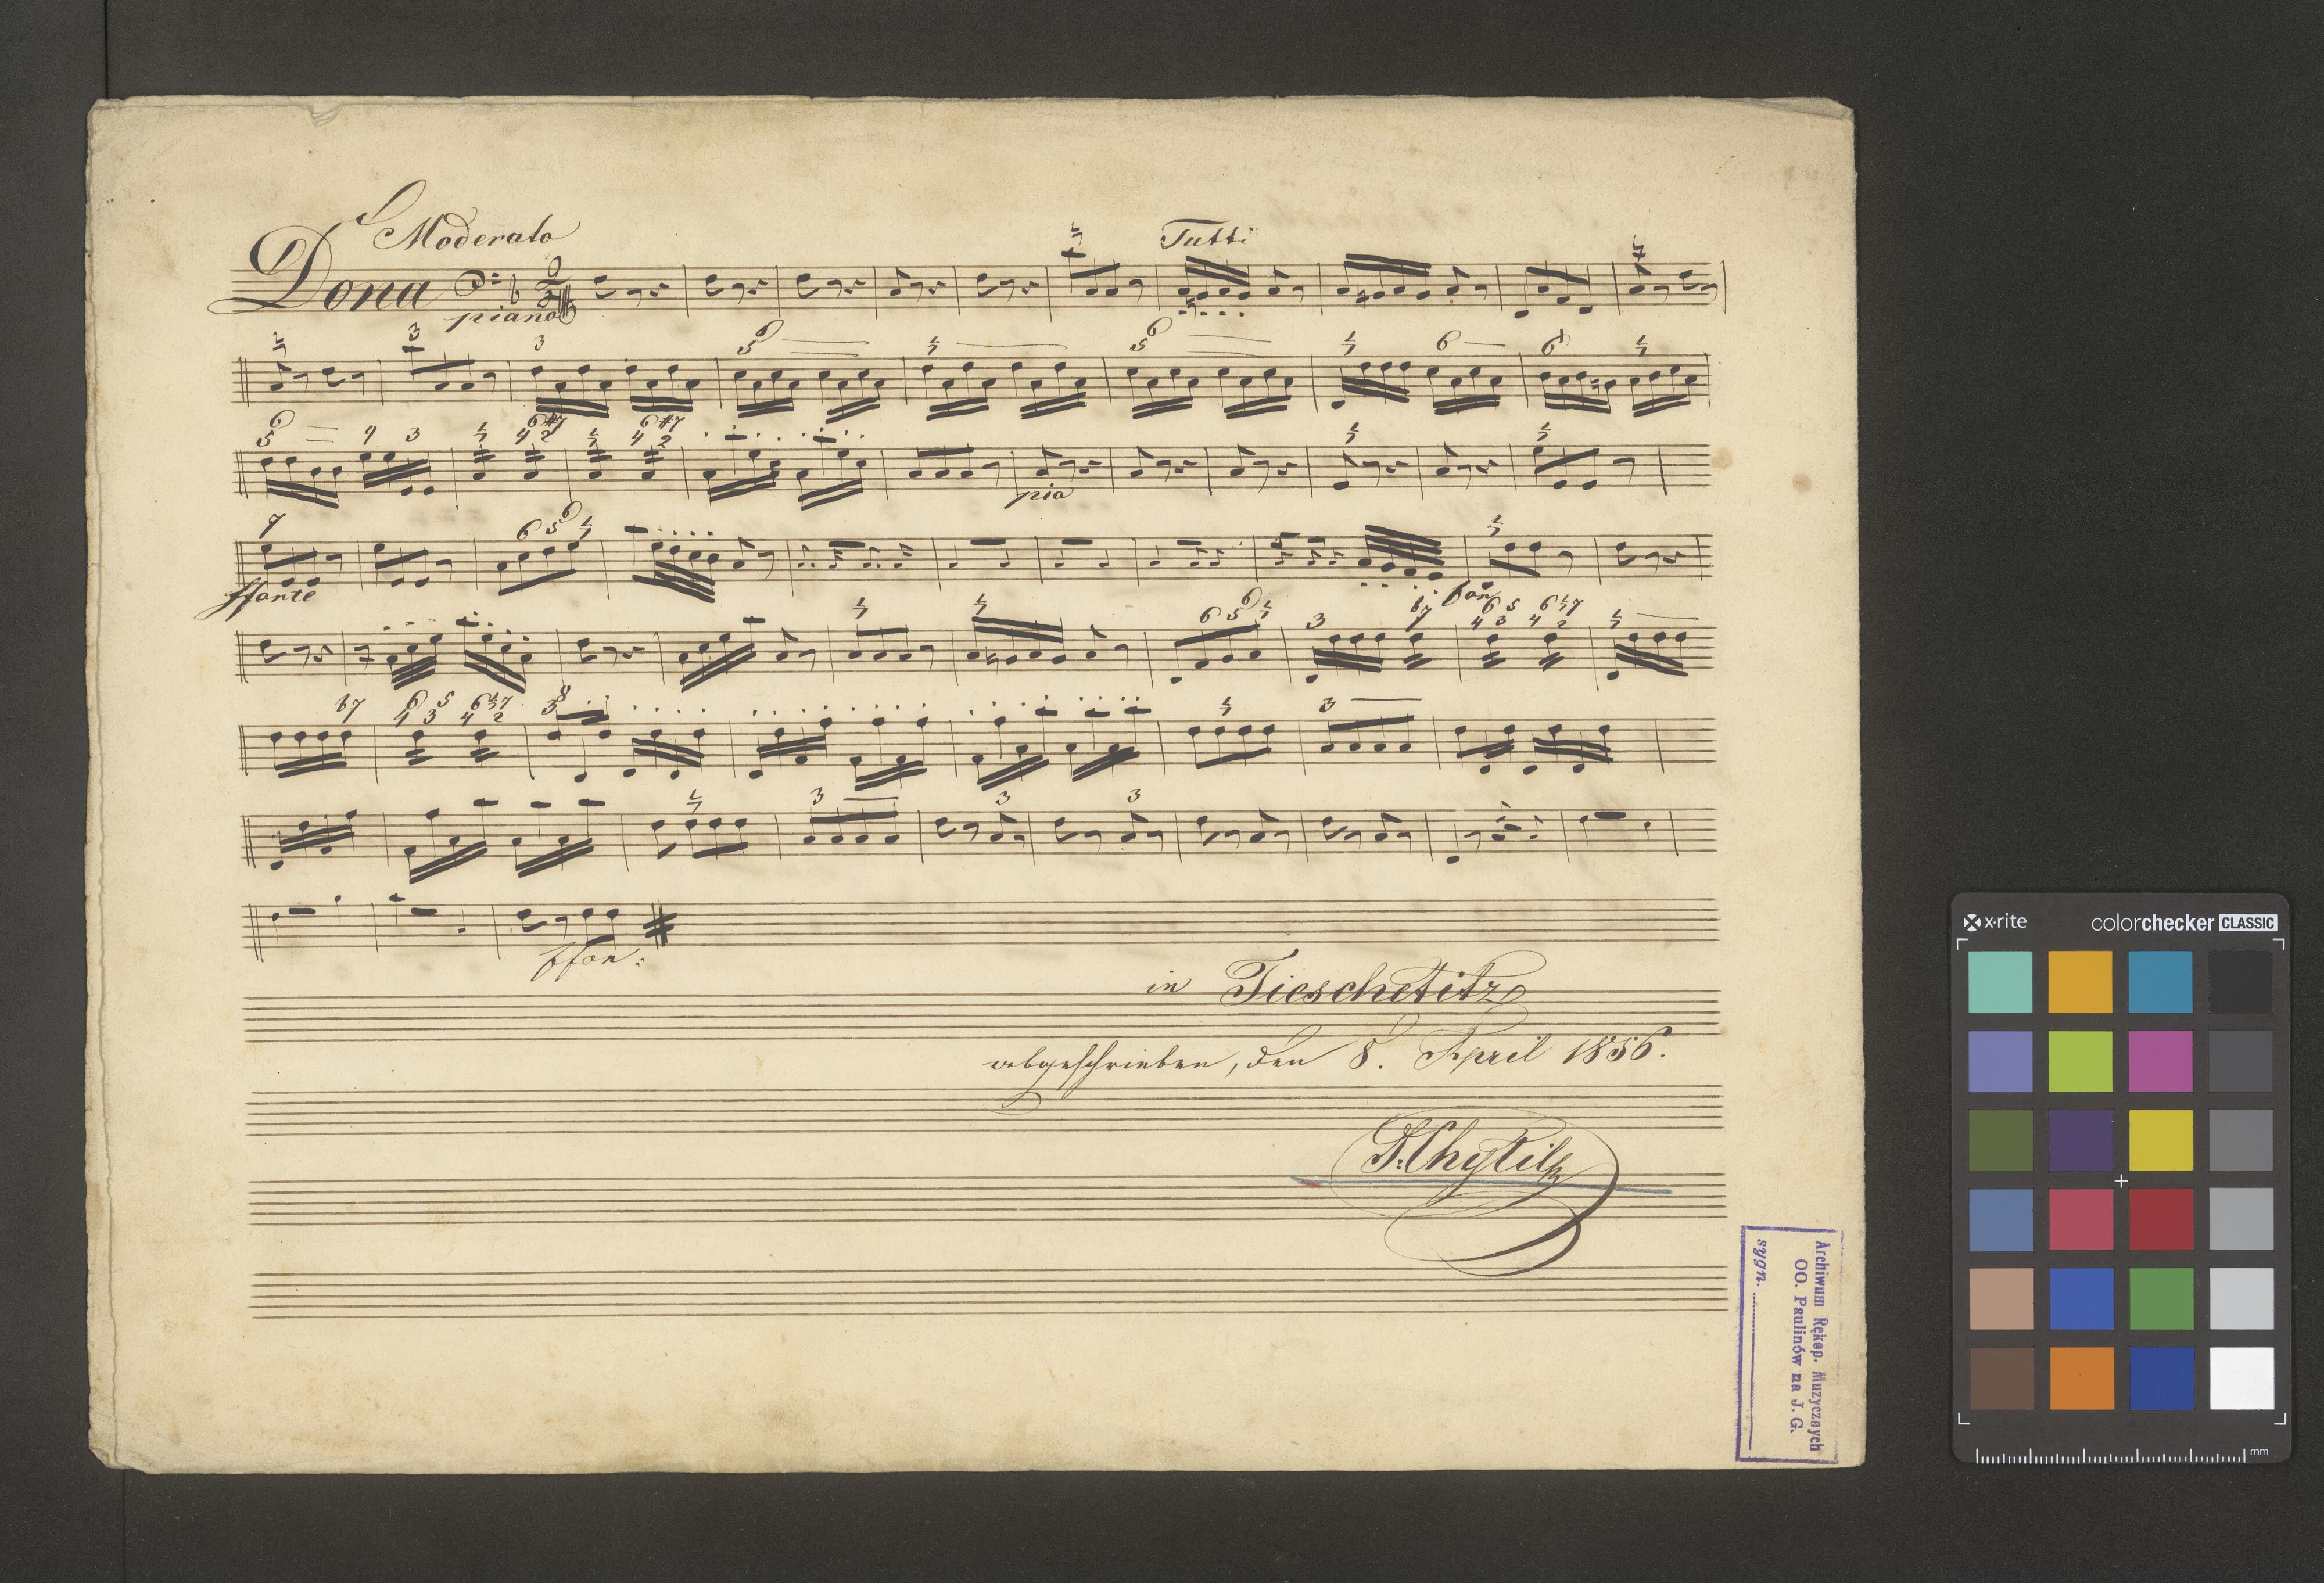 Moderato
Dona
piano
Tutti
pia
fforte
for
ffor:
in Tieschetitz
abgeschrieben, den 8. April 1856.
Archiwum Rękop. Muzycznych
OO. Paulinów na J. G.
sygn.
x·rite colorchecker CLASSIC
mm